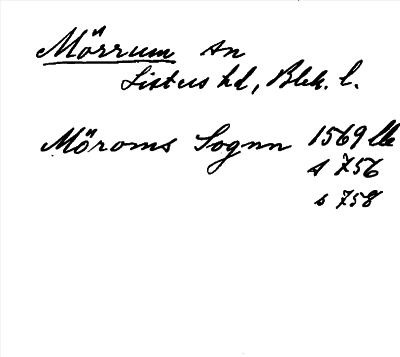 Mörrum sn
Listers hd, Blek. l.
Möroms Sognn 1569 lb
s 756
s 758